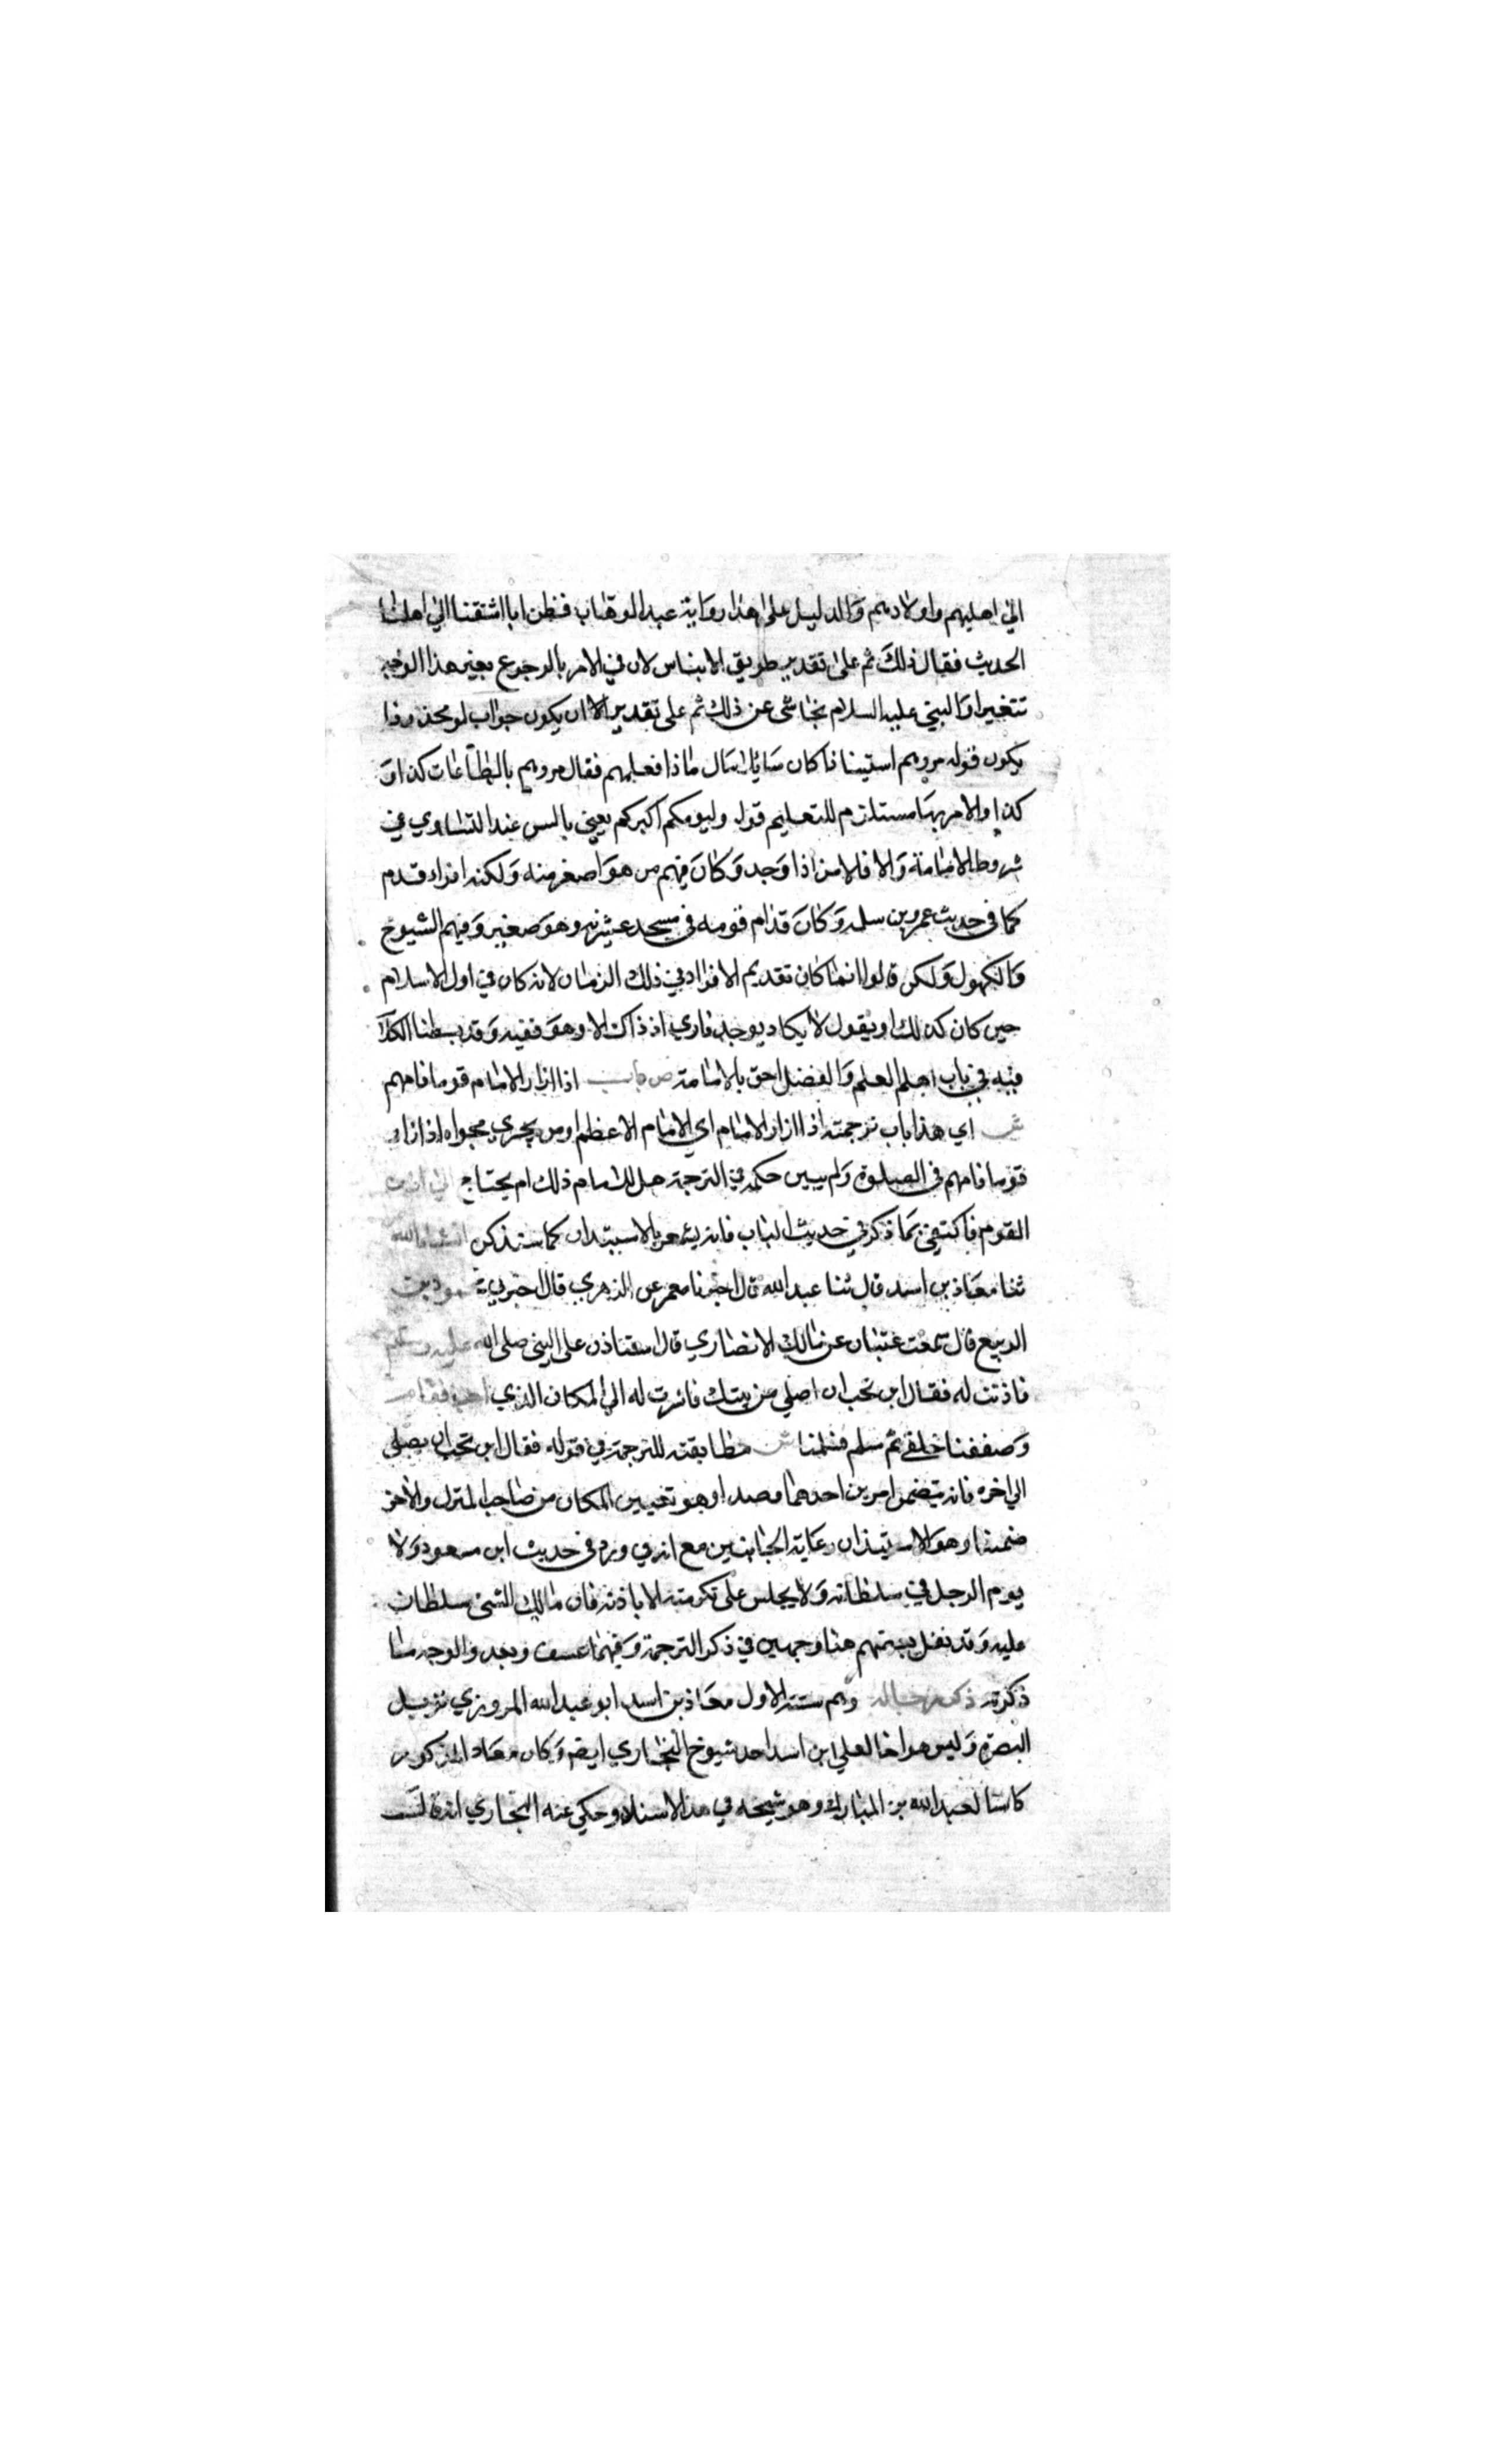 الي اهليهم واولادهم والدليل على هذا رواية عبد الوهاب فظن انا اشتقنا الي اهلنا
الحديث فقال ذلك ثم على تقدير طريق الايناس لان في الامر بالرجوع بغير هذا الوجه
تنفيرا والنبي عليه السلام يتحاشى عن ذلك ثم على تقدير الا ان يكون جواب لو محذوفا
يكون قوله مروهم استينافا كان سايلا سال ماذا فعلهم فقال مروهم بالطاعات كذا و
كذا والامر بها مستلزم للتعليم قوله وليومكم اكبركم يعني بالسن عند التساوي في
شروط الامامة والا فلامن اذا وجد وكان فيهم من هو اصغر منه ولكنه اقراء قدم
كما في حديث عمرو بن سلمه وكان قدام قومه في مسجد عشيرته وهو صغير وفيهم الشيوخ
والكهول ولكن قالوا انما كان تقديم الاقراء في ذلك الزمان لانه كان في اول الاسلام
حين كان كذلك او يقول لا يكاد يوجد قاري اذ ذاك الا وهو فقيه وقد بسطنا الكلام
فيه في باب اهل العلم والفضل احق بالامامة ص باب اذا زار الامام قوما فامهم
ش اي هذا باب ترجمته اذا زار الامام اي الامام الاعظم او من يجري مجراه اذا زار
قوما فامهم في الصلوة ولم يبين حكمه في الترجمة هل للامام ذلك ام يحتاج الي اذن
القوم فاكتفى بما ذكر في حديث الباب فانه يشعر بالاستيذان كما ستذكر ان شاء الله
ثنا معاذ بن اسد قال ثنا عبد الله قال اخبرنا معمر عن الزهري قال اخبرني محمود بن
الربيع قال سمعت عتبان عن مالك الانصاري قال استاذن على النبي صلى الله عليه وسلم
فاذنت له فقال اين تحب ان اصلي من بيتك فاشرت له الي المكان الذي احب فقام
وصففنا خلفه ثم سلم فسلمنا ش مطابقته للترجمة في قوله فقال اين تحب ان يصلي
الي اخره فانه يتضمن امرين احدهما قصدا وهو تعيين المكان من صاحب المنزل والاخر
ضمنا وهو الاستيذان رعاية الجانبين مع انه في ورد في حديث ابن مسعود ولا
يوم الرجل في سلطانه ولا يجلس على تكرمته الا باذنه فان مالك الشي سلطان
عليه وقد نقل بعضهم هنا وجهين في ذكر الترجمة وفيهما عسف وبعد والوجه ما
ذكرته ذكر رجاله وهم ستة الاول معاذ بن اسد ابو عبد الله المروزي نزيل
البصرة وليس هو اخا لعلي ابن اسد احد شيوخ البخاري ايضا وكان معاذ المذكور
كاتبا لعبد الله بن المبارك وهو شيخه في هذا الاسناد وحكي عنه البخاري انه قال